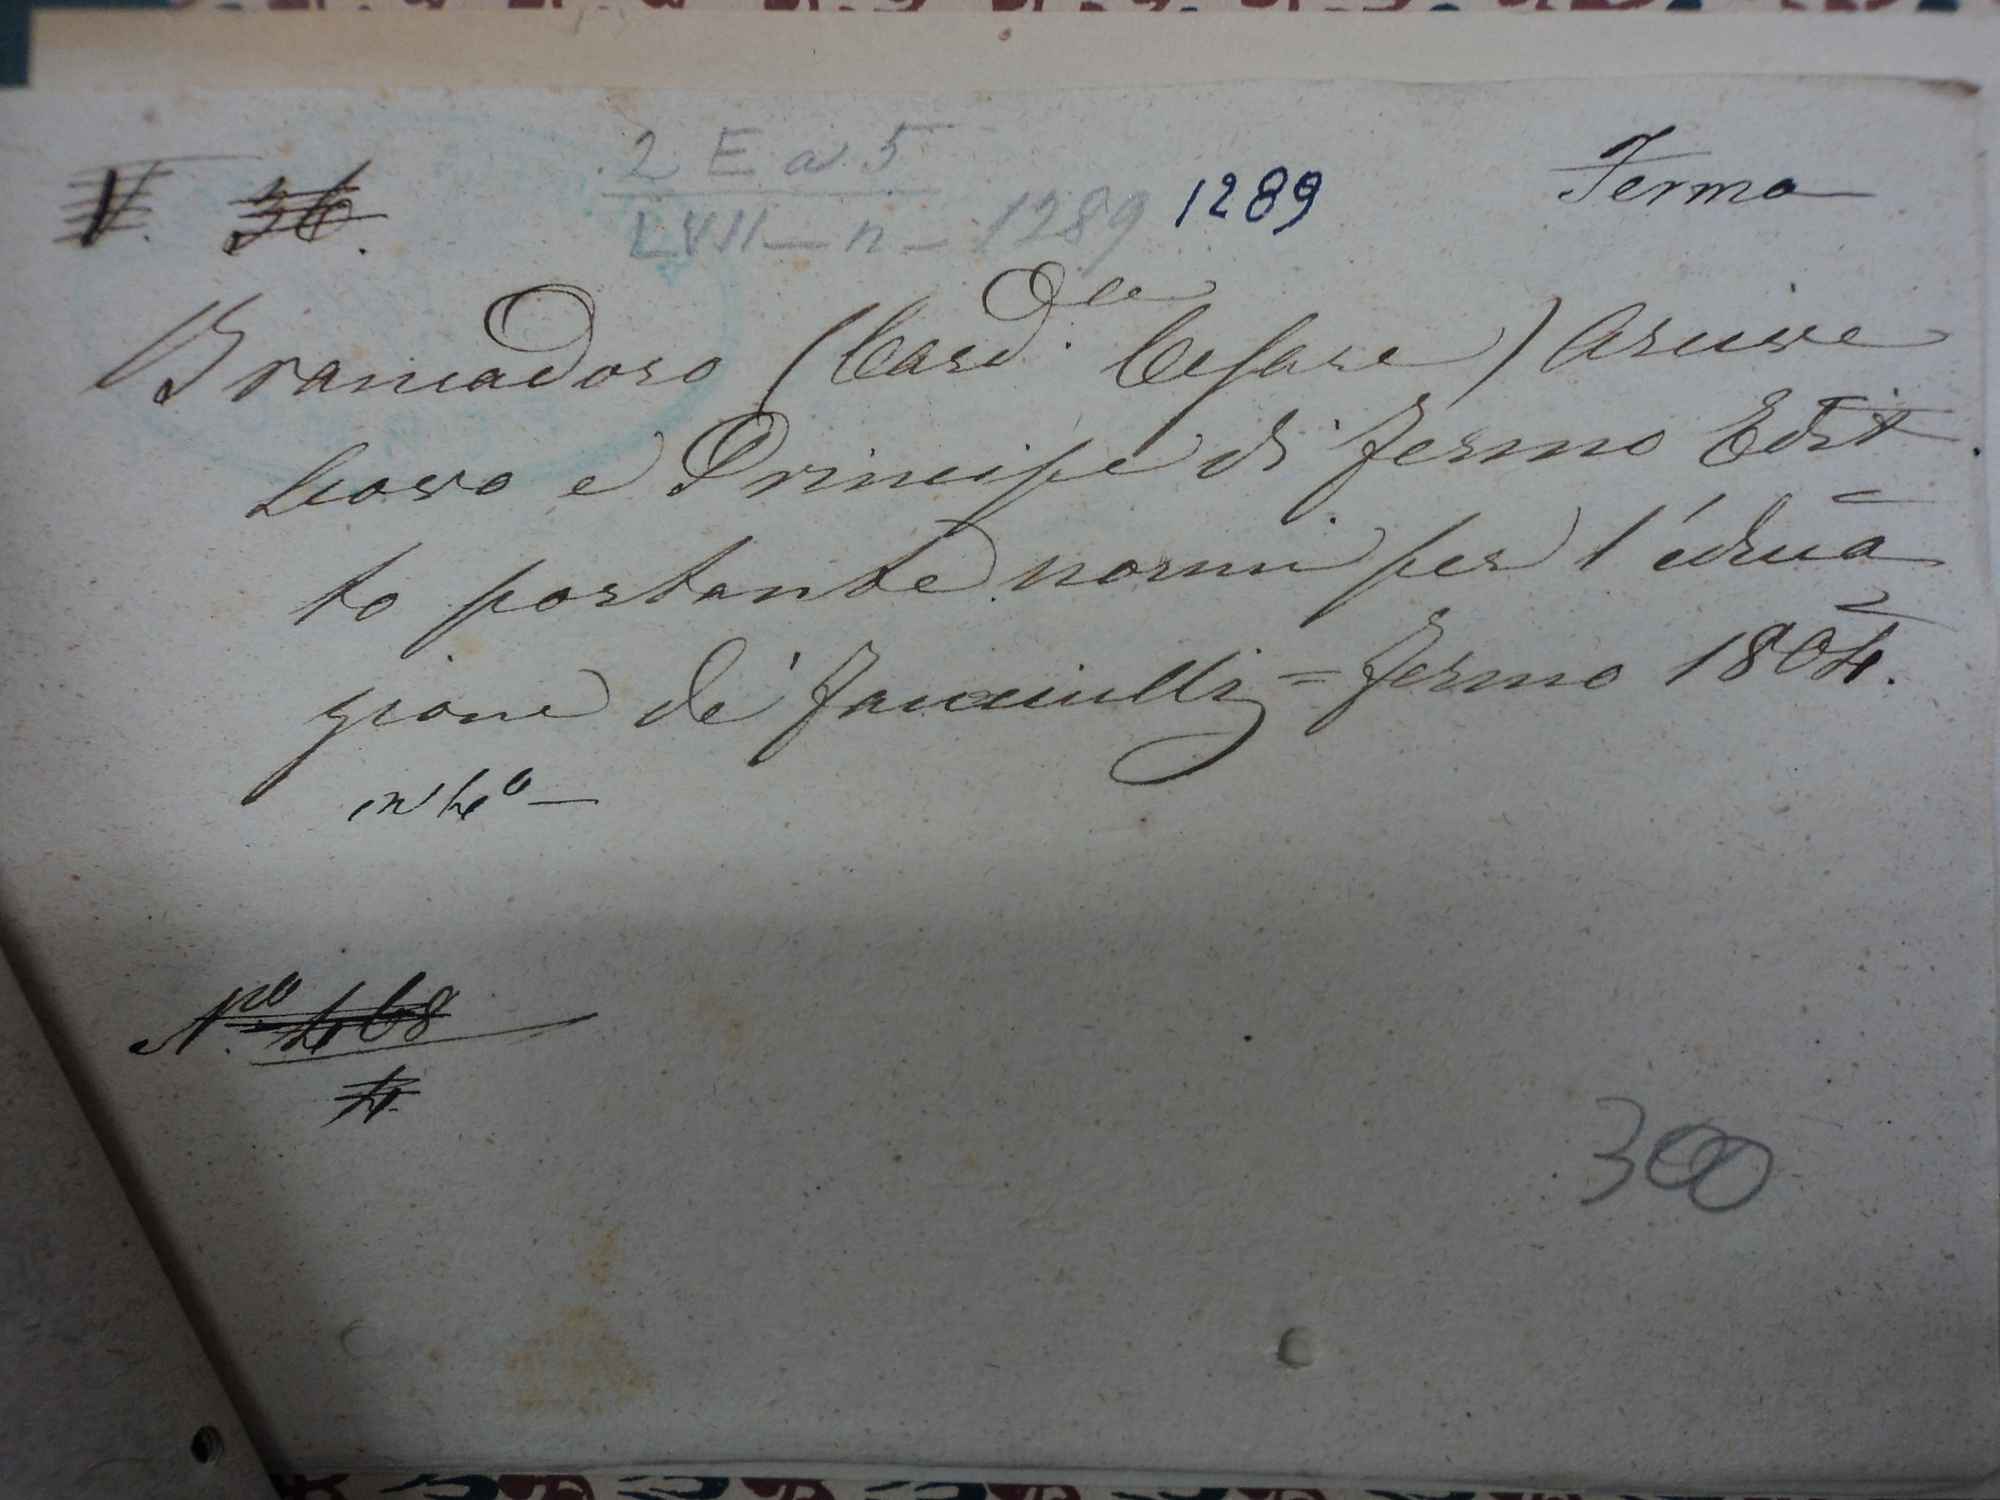 V. 36.
2 E a 5
LVII — n — 1289
1289
Fermo
Brancadoro (Card.le Cesare) Arcive
scovo e Principe di Fermo Edit
to portante norme per l'educa
zione de' fanciulli = Fermo 1804.
in 4º —
Nº. 468
4.
300